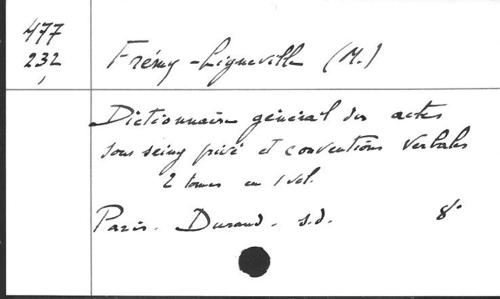 477
232
Frémy-Ligneville (M.)
Dictionnaire général des actes
sous seing privé et conventions verbales
2 tomes en 1 vol.
Paris. Durand. s.d. 8°